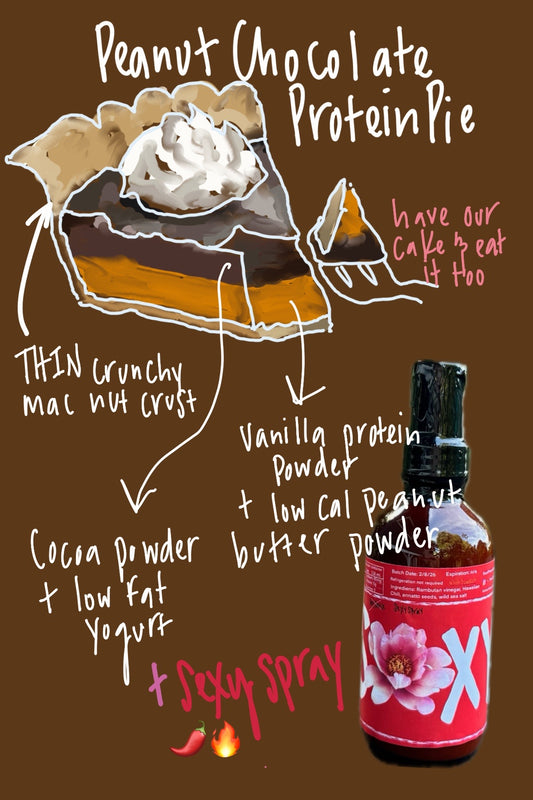 Peanut Chocolate
Protein Pie
have our
cake & eat
it too
THIN crunchy
mac nut crust
Vanilla protein
Powder
+ low cal peanut
butter powder
Cocoa powder
+ low fat
Yogurt
+ sexy spray
🌶️🔥
Batch Date: 2/8/25 Expiration: n/a
Refrigeration not required
Ingredients: Rambutan vinegar, Hawaiian
Chili, annatto seeds, wild sea salt
XY